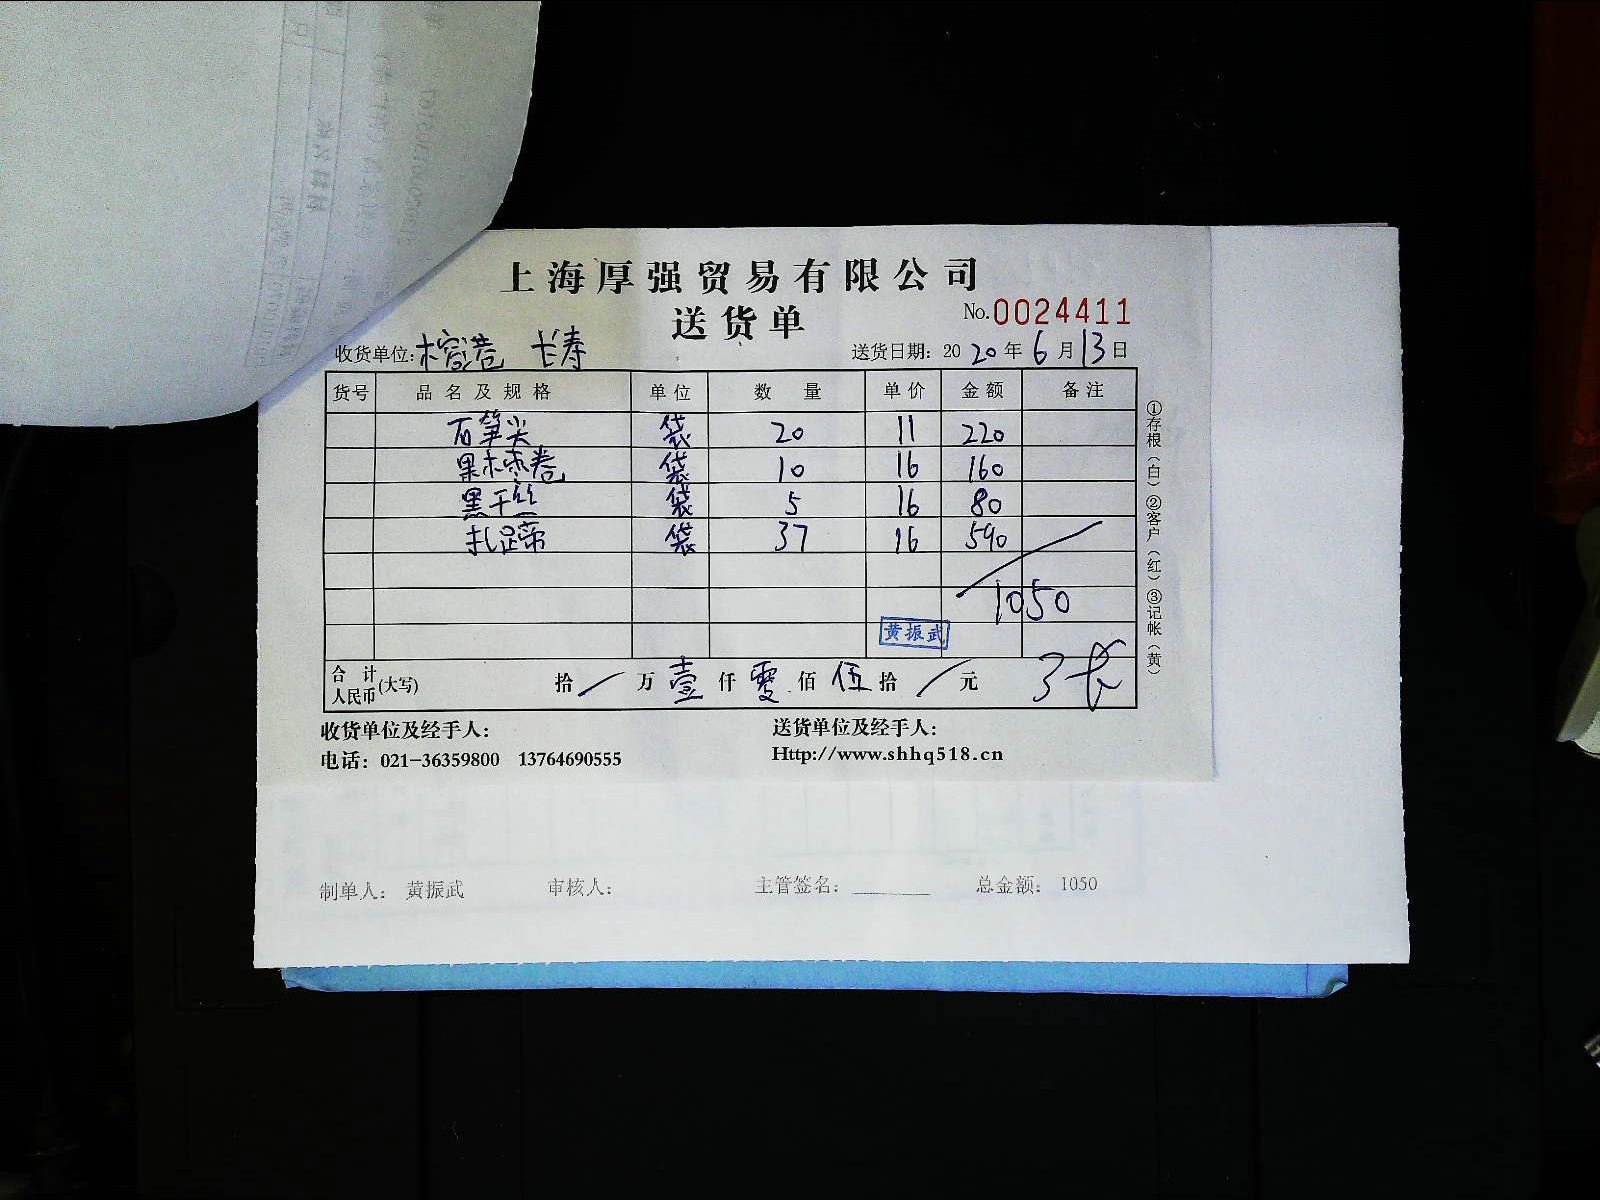 上海厚强贸易有限公司
送货单
No.0024411
收货单位: 榕港 长寿
送货日期: 2020年6月13日
货号 品名及规格 单位 数量 单价 金额 备注
百笋尖 袋 20 11 220
果木枣卷 袋 10 16 160
黑干丝 袋 5 16 80
扎蹄 袋 37 16 590
1050
黄振武
合计人民币(大写) 拾 / 万 壹 仟 零 佰 伍 拾 / 元
3长
①存根(白)②客户(红)③记帐(黄)
收货单位及经手人: 送货单位及经手人:
电话: 021-36359800 13764690555 Http://www.shhq518.cn
制单人: 黄振武 审核人: 主管签名: ________ 总金额: 1050